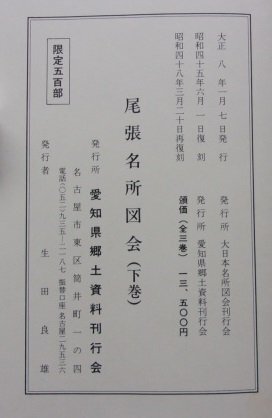 大正八年一月七日発行 発行所 大日本名所図会刊行会
昭和四十五年六月一日復刻 発行所 愛知県郷土資料刊行会
昭和四十八年三月二十日再復刻 頒価(全三巻) 一三、五〇〇円
尾張名所図会(下巻)
発行所 愛知県郷土資料刊行会
名古屋市東区筒井町一の四
電話(〇五二)九三五―二一八七 振替口座 名古屋二九五三六
発行者 生田良雄
限定五百部